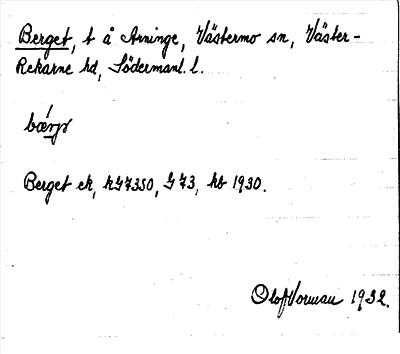 Berget, t å Arninge, Västermo sn, Väster-
Rekarne hd, Södermanl. l.
Berget ek, kG7350, G 73, hb 1930.
Olof Vorman 1932.